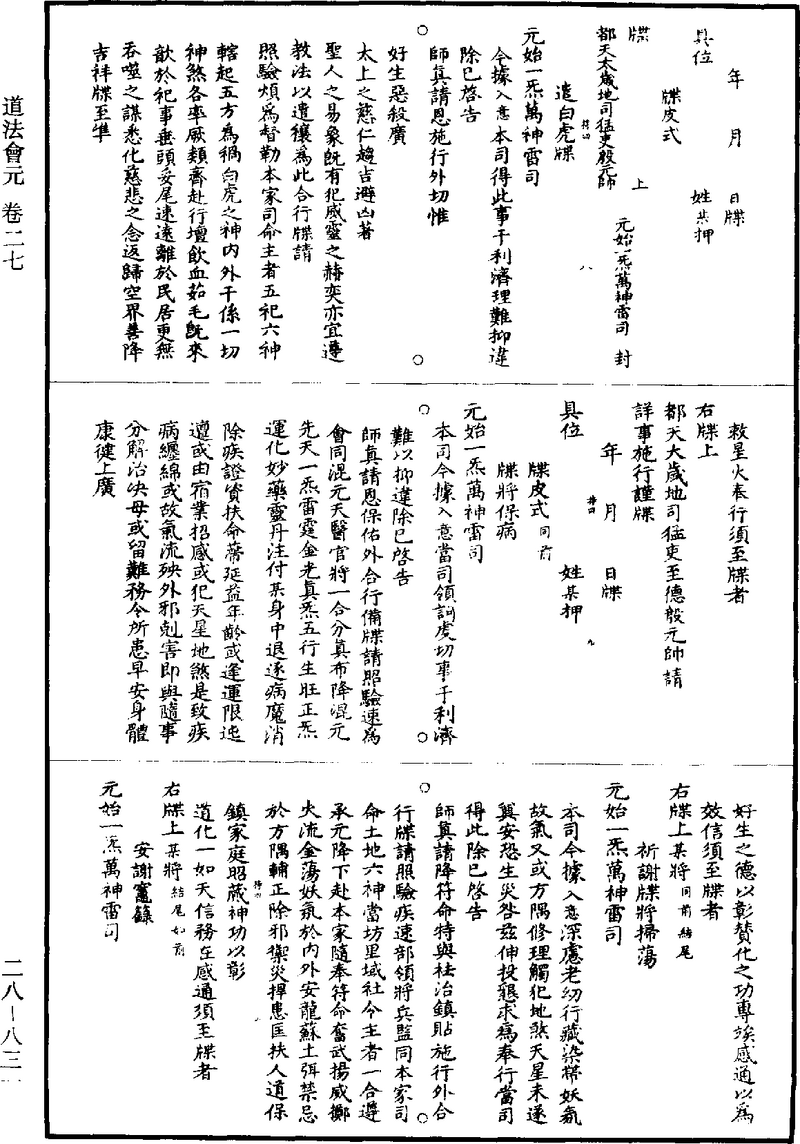 年　月　日牒
具位　姓某押
牒皮式
牒　上　元始一炁萬神雷司　封
都天太歲地司猛吏殷元帥
遣白虎牒
元始一炁萬神雷司
令據入意本司得此事干利濟理難抑違
除已啓告
師眞請恩施行外切惟
好生惡殺廣
太上之慈仁趨吉避凶著
聖人之易象旣有犯威靈之赫奕亦宜遵
教法以遣禳爲此合行牒請
照驗煩爲督勒本家司命主者五祀六神
轄起五方爲禍白虎之神内外干係一切
神煞各率厥類齊赴行壇飲血茹毛旣來
歆於祀事垂頭妥尾速遠離於民居更無
吞噬之謀悉化慈悲之念返歸空界善降
吉祥牒至準
敕星火奉行須至牒者
右牒上
都天大歲地司猛吏至德殷元帥請
詳事施行謹牒
年　月　日牒
具位　姓某押
牒皮式同前
牒將保病
元始一炁萬神雷司
本司今據入意當司領詞虔切事干利濟
難以抑違除已啓告
師眞請恩保佑外合行備牒請照驗速爲
會同混元天醫官將一合分眞布降混元
先天一炁雷霆金光眞炁五行生旺正炁
運化妙藥靈丹注付某身中退逐病魔消
除疾證資扶命蒂延益年齡或逢運限迍
邅或由宿業招感或犯天星地煞是致疾
病纏綿或故氣流殃外邪剋害即與隨事
分解治決毋或留難務令所患早安身體
康健上廣
好生之德以彰贊化之功專埃感通以爲
效信須至牒者
右牒上某將同前結尾
祈謝牒將掃蕩
元始一炁萬神雷司
本司今據入意深慮老幼行藏染惹妖氣
故氣又或方隅修理觸犯地煞天星未遂
冀安恐生災咎茲伸投懇求爲奉行當司
得此除已啓告
師眞請降符命特與祛治鎮貼施行外合
行牒請照驗疾速部領將兵監同本家司
命土地六神當坊里域社令主者一合遵
承元降下赴本家隨奉符命奮武揚威擲
火流金蕩妖氛於内外安龍蘇土弭禁忌
於方隅輔正除邪禦災捍患匡扶人道保
鎮家庭昭葳神功以彰
道化一如天信務在感通須至牒者
右牒上某將結尾如前
安謝竈籙
元始一炁萬神雷司
道法會元　卷二七
二八—八三一